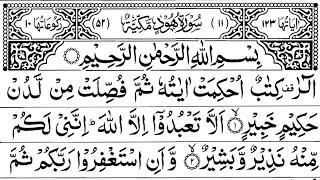 اٰيَاتُهَا ١٢٣ (١١) سُوْرَةُ هُوْدٍ مَّكِّيَّةٌ (٥٢) رُكُوْعَاتُهَا ١٠
بِسْمِ اللّٰهِ الرَّحْمٰنِ الرَّحِيْمِ
الٓرٰ كِتٰبٌ اُحْكِمَتْ اٰيٰتُهٗ ثُمَّ فُصِّلَتْ مِنْ لَّدُنْ
حَكِيْمٍ خَبِيْرٍ ۝١ اَلَّا تَعْبُدُوْۤا اِلَّا اللّٰهَ ؕ اِنَّنِيْ لَكُمْ
مِّنْهُ نَذِيْرٌ وَّبَشِيْرٌ ۝٢ وَّاَنِ اسْتَغْفِرُوْا رَبَّكُمْ ثُمَّ